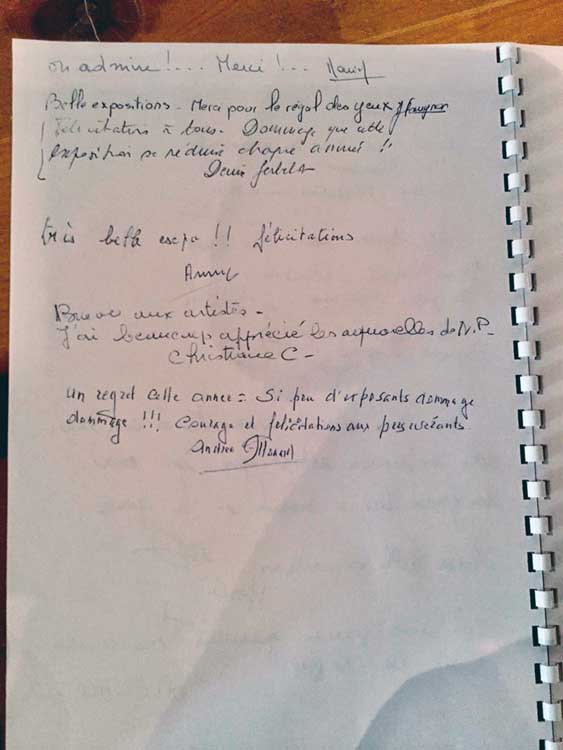 on admire !... Merci !...
Belle expositions - Merci pour le régal des yeux
Félicitations à tous. Dommage que cette
exposition se réduise chaque année !!
Denise
très belle expo !! félicitations
Anny
Bravo aux artistes -
J'ai beaucoup apprécié les aquarelles de N.P-
Christiane C -
un regret cette année = Si peu d'exposants dommage
dommage !!! Courage et félicitations aux persévérants
Andrée